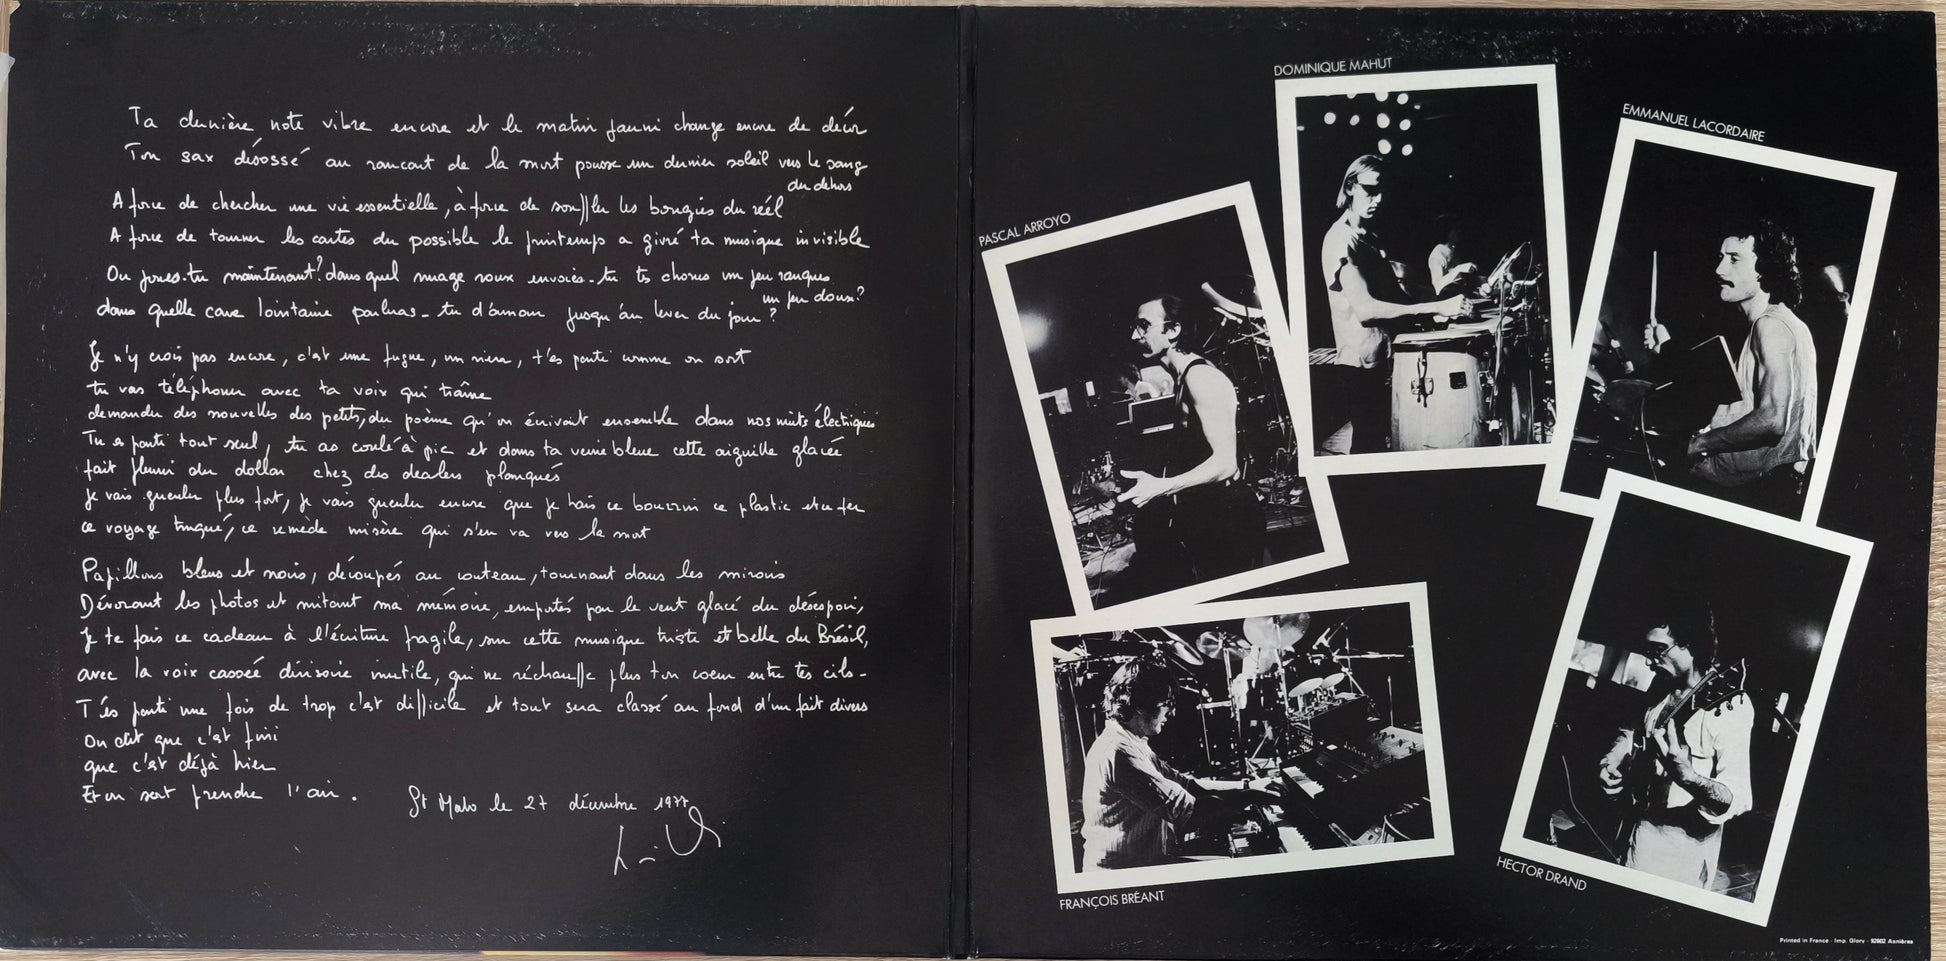 Ta dernière note vibre encore et le matin jauni change encore de décor
Ton sax désossé au rancart de la mort pousse un dernier soleil vers le sang
du dehors
A force de chercher une vie essentielle, à force de souffler les bougies du réel
A force de tourner les cartes du possible le printemps a givré ta musique invisible
Ou joues-tu maintenant? dans quel nuage roux envoies-tu tes chorus un peu rauques
un peu doux?
dans quelle cave lointaine parleras-tu d'amour jusqu'au lever du jour ?
Je n'y crois pas encore, c'est une fugue, un , t'es parti comme on sort
tu vas téléphoner avec ta voix qui traîne
demander des nouvelles des petits, du poème qu'on écrivait ensemble dans nos nuits électriques
Tu es parti tout seul, tu as coulé à pic et dans ta veine bleue cette aiguille glacée
fait fleurir du dollar chez des dealers planqués
Je vais gueuler plus fort, je vais gueuler encore que je hais ce bourrin ce plastic et ce fer
ce voyage truqué, ce remède misère qui s'en va vers la mort
Papillons bleus et noirs, découpés au couteau, tournant dans les miroirs
Dévorant les photos et mitant ma mémoire, emportés par le vent glacé du désespoir,
Je te fais ce cadeau à l'écriture fragile, sur cette musique triste et belle du Brésil,
avec la voix cassée dérisoire inutile, qui ne réchauffe plus ton coeur entre tes cils-
T'es parti une fois de trop c'est difficile et tout sera classé au fond d'un fait divers
On dit que c'est fini
que c'est déjà hier
Et on sort prendre l'air.
St Malo le 27 décembre 1977
DOMINIQUE MAHUT
EMMANUEL LACORDAIRE
PASCAL ARROYO
HECTOR DRAND
FRANÇOIS BRÉANT
Printed in France - Imp. Glory - 92602 Asnières